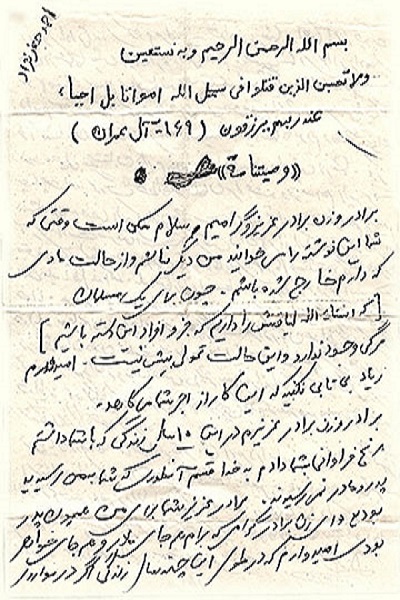 بسم الله الرحمن الرحیم و به نستعین
ولا تحسبن الذین قتلوا فی سبیل الله امواتا بل احیاء
عند ربهم یرزقون ( ۱۶۹ - آل عمران )
«وصیتنامه»
برادر و زن برادر عزیز و گرامیم سلام ممکن است وقتی که
شما این نوشته را می خوانید من دیگر نباشم و از حالت مادی
که دارم خارج شده باشم . چون برای یک مسلمان
[ که انشاء الله لیاقتش را داریم که جزو افراد این دسته باشیم ]
مرگی وجود ندارد و این حالت تحولی بیش نیست . امیدوارم
زیاد بی تابی نکنید که این کار از اجر شما می کاهد .
برادر و زن برادر عزیزم در این ۱۰ سال زندگی که با شما داشتم
رنج فراوانی بشما دادم به خدا قسم آنطوری که شما بمن رسیدید
پدر و مادر نمی رسیدند . برادر عزیز شما برای من همچون پدر
بودید و ای زن برادر گرامی که برایم هم جای مادر و هم جای خواهر
بودی امیدوارم که در طول این چند سال زندگی اگر در مواردی